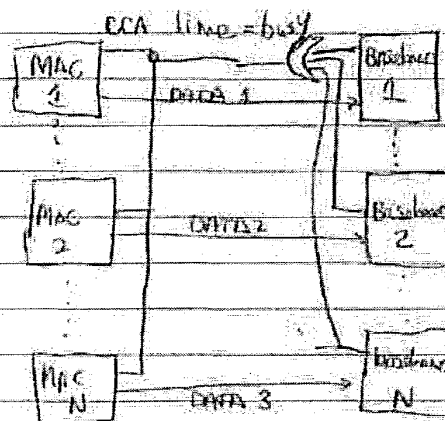 CCA line = busy
MAC
1
Baseband
1
DATA 1
MAC
2
DATA 2
Baseband
2
MAC
N
DATA 3
Baseband
N